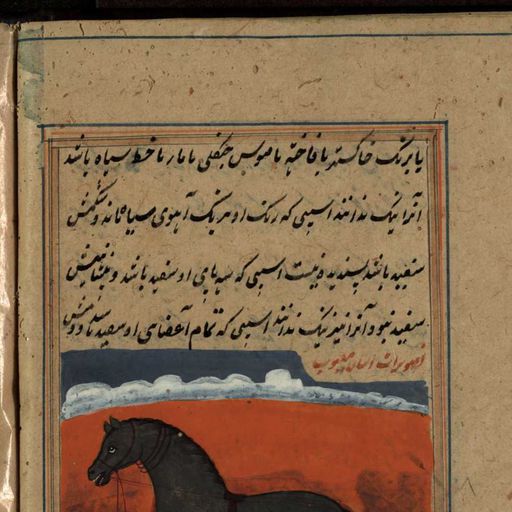 یا برنگ خاکستر یا فاخته یا موس جنگلی یا مار یا خط سیاه باشد
آنرا نیک ندانند اسپی که رنگ او برنگ آهوی سیاه ماند و شکمش
سفید باشد پسندیده نیست اسپی که سه پای او سفید باشد و پیشانیش
سفید نبود آنرا نیز نیک ندانند اسپی که تمام آعضای او سفید باشد و
تصویرات اسپان معیوب